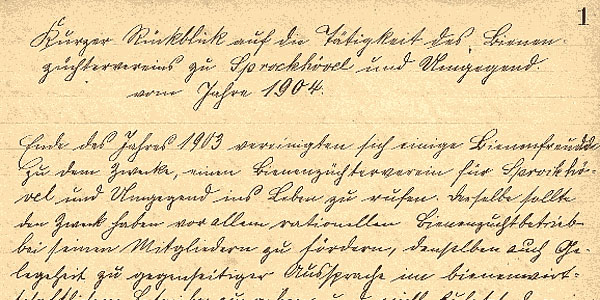 1
Kurzer Rückblick auf die Tätigkeit des Bienen-
züchtervereins zu Sprockhövel und Umgegend.
vom Jahre 1904.
Ende des Jahres 1903 vereinigten sich einige Bienenfreunde
zu dem Zwecke, einen Bienenzüchterverein für Sprockhö-
vel und Umgegend ins Leben zu rufen. Derselbe sollte
den Zweck haben vor allem rationellen Bienenzuchtbetrieb
bei seinen Mitgliedern zu fördern, denselben auch Ge-
legeheit zu gegenseitiger Aussprache im bienenwirt-